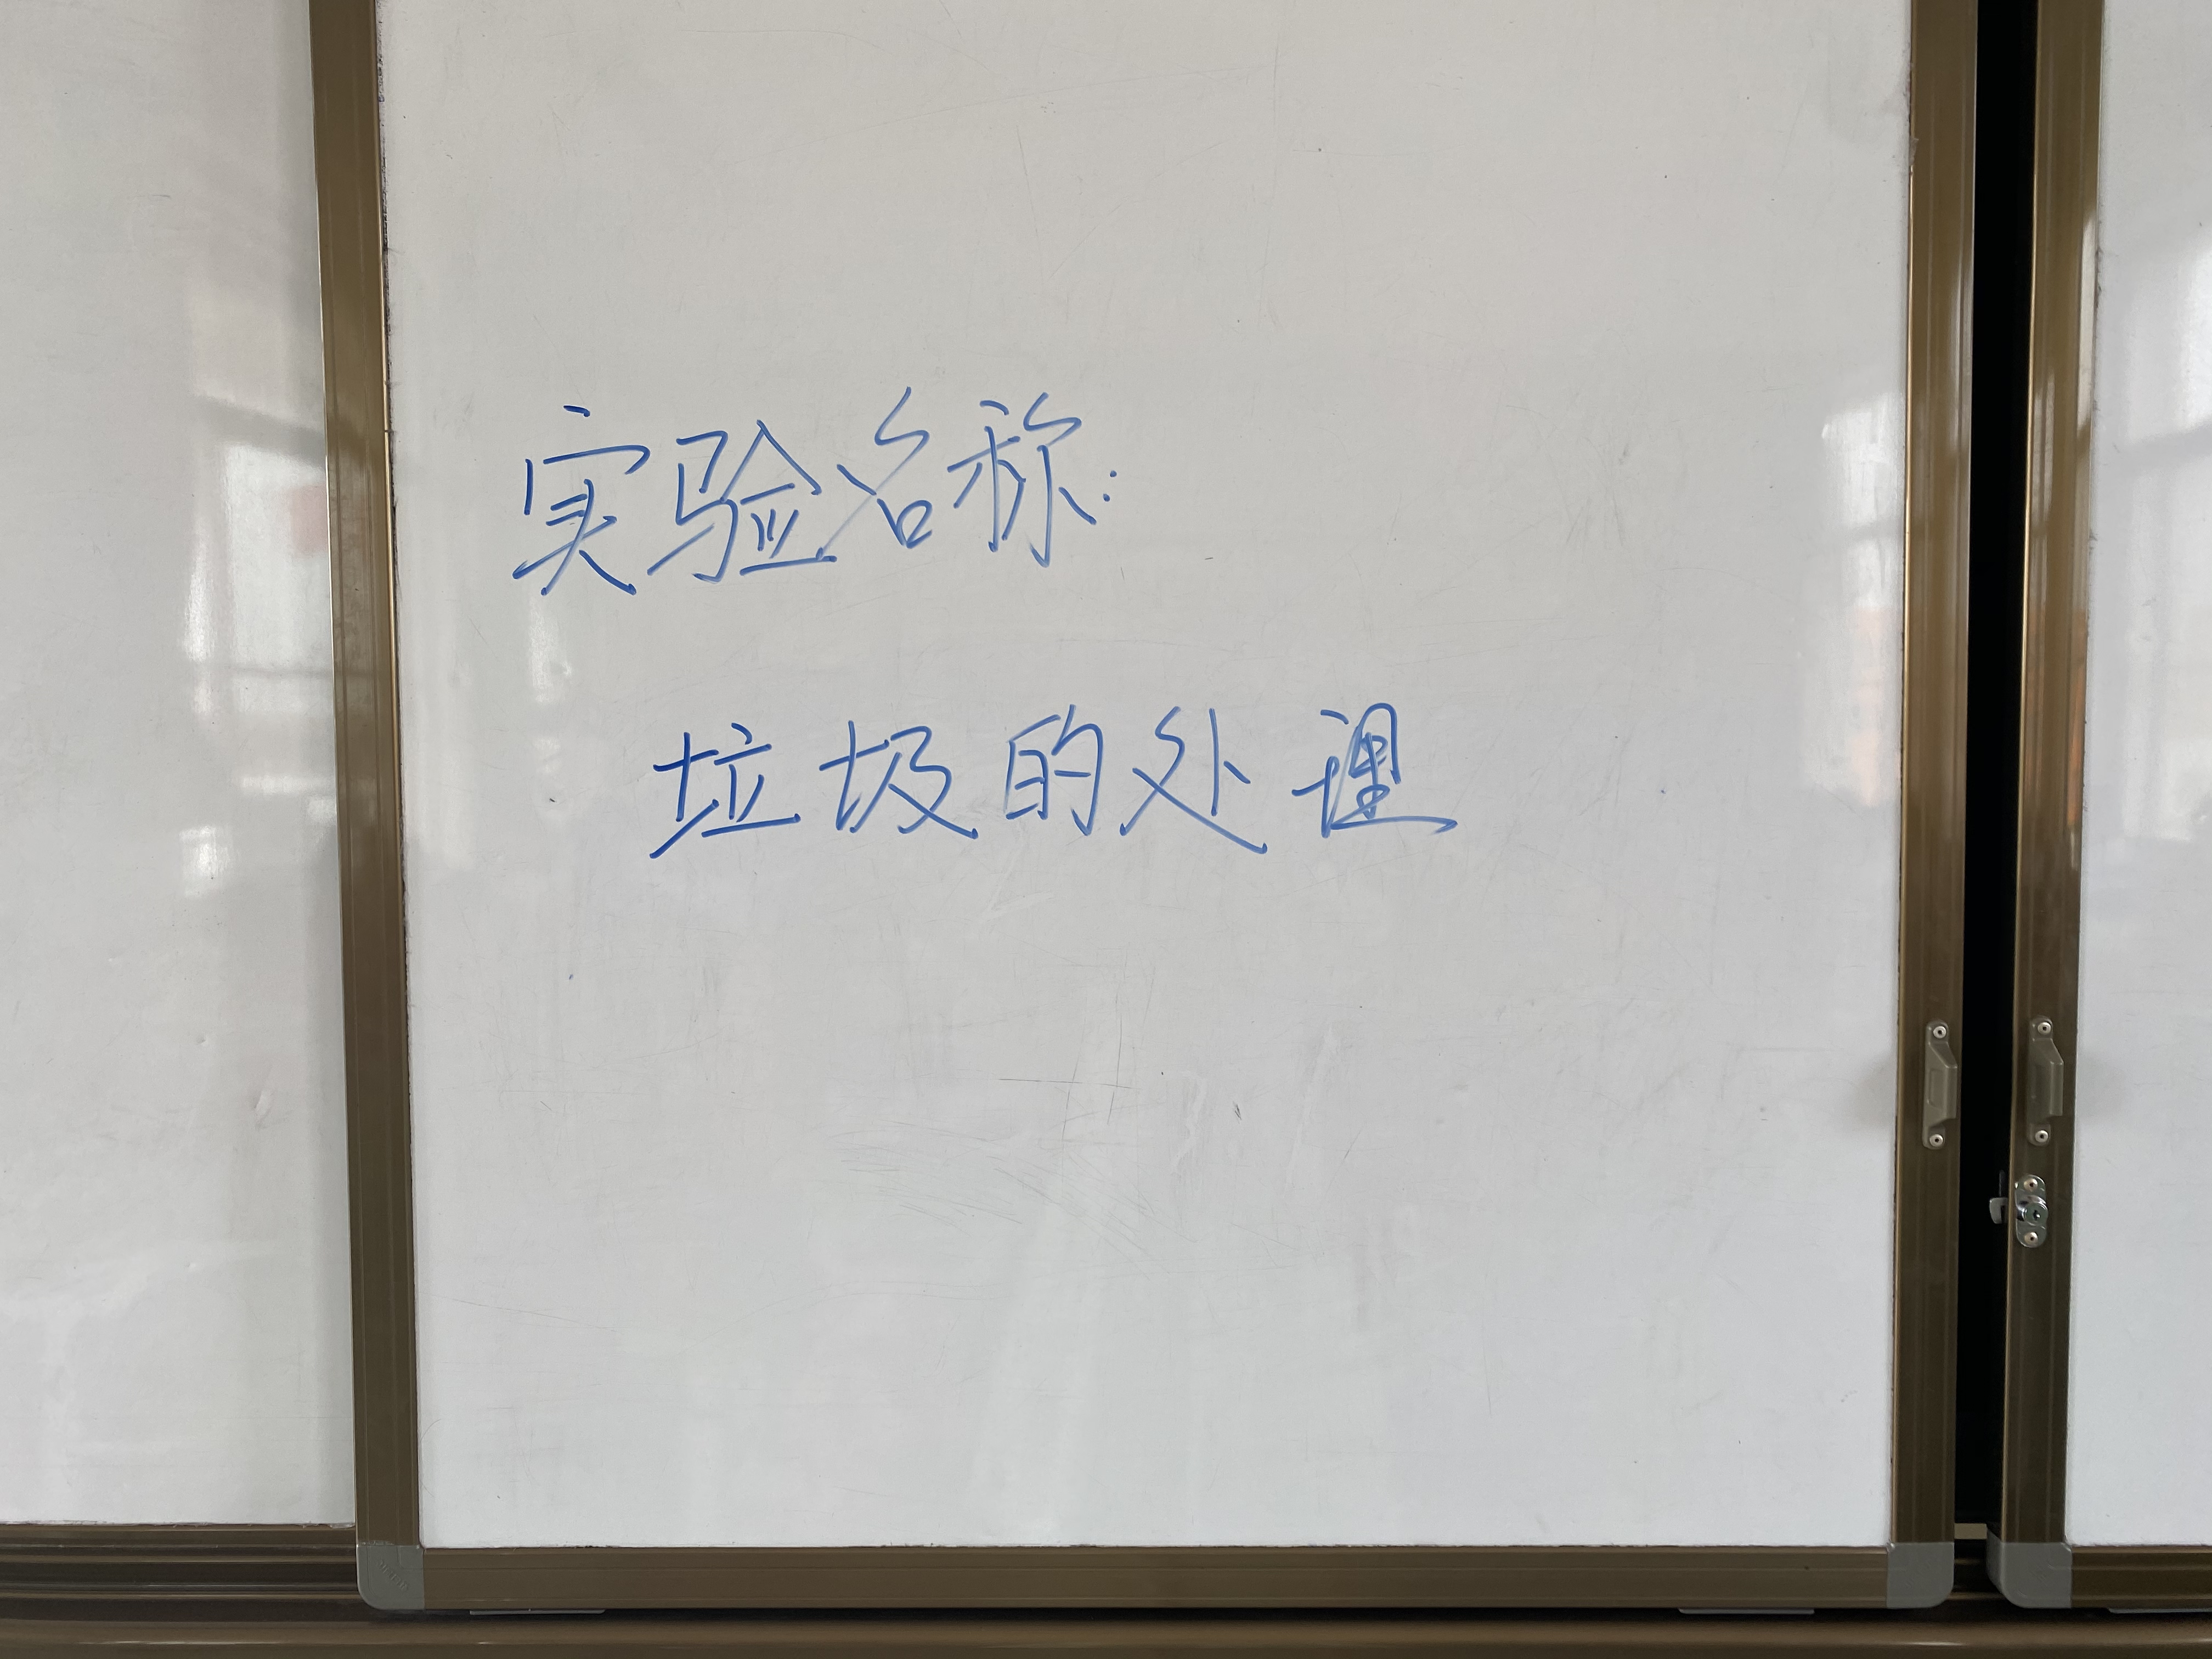 实验名称:
垃圾的处理